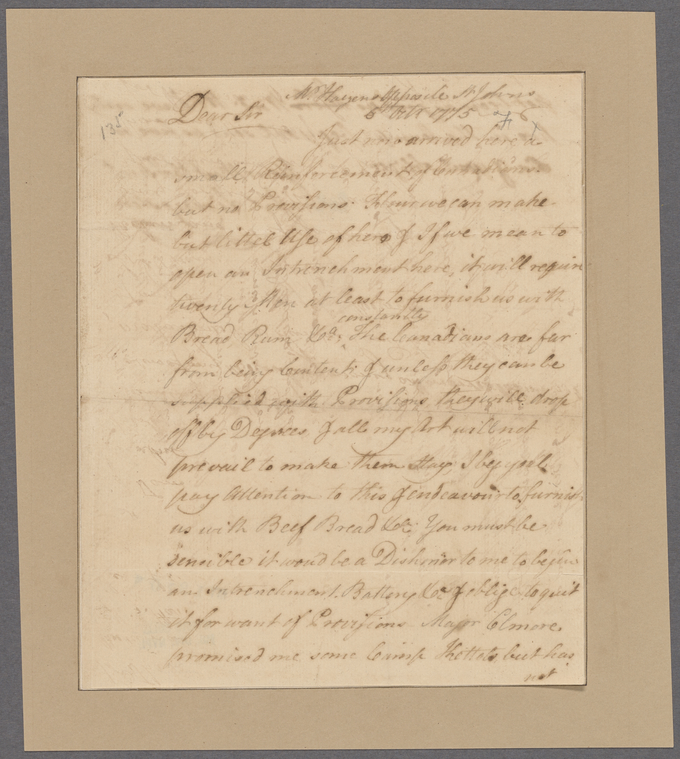 Mr Hazens Opposite St Johns
Dear Sir 5 Octr 1775
135
Just now arrived here a
small Reinforcement of
but no Provisions. Hence we can make
but little Use of here & If we mean to
open an Intrenchment here, it will requir
twenty Men at least to furnish us with
constantly
Bread Rum &c; The Canadians are far
from being Content & unless they can be
supplied with Provisions they will drop
off by Degrees & all my Art will not
prevail to make them stay I beg youl
pay Attention to this & endeavour to furnish
us with Beef Bread &c; You must be
sensible it woud be a Dishonor to me to begin
an Intrenchment Battery &c & oblige to quit
it for want of Provisions Major Elmore
promised me some Camp Kettels but has
not